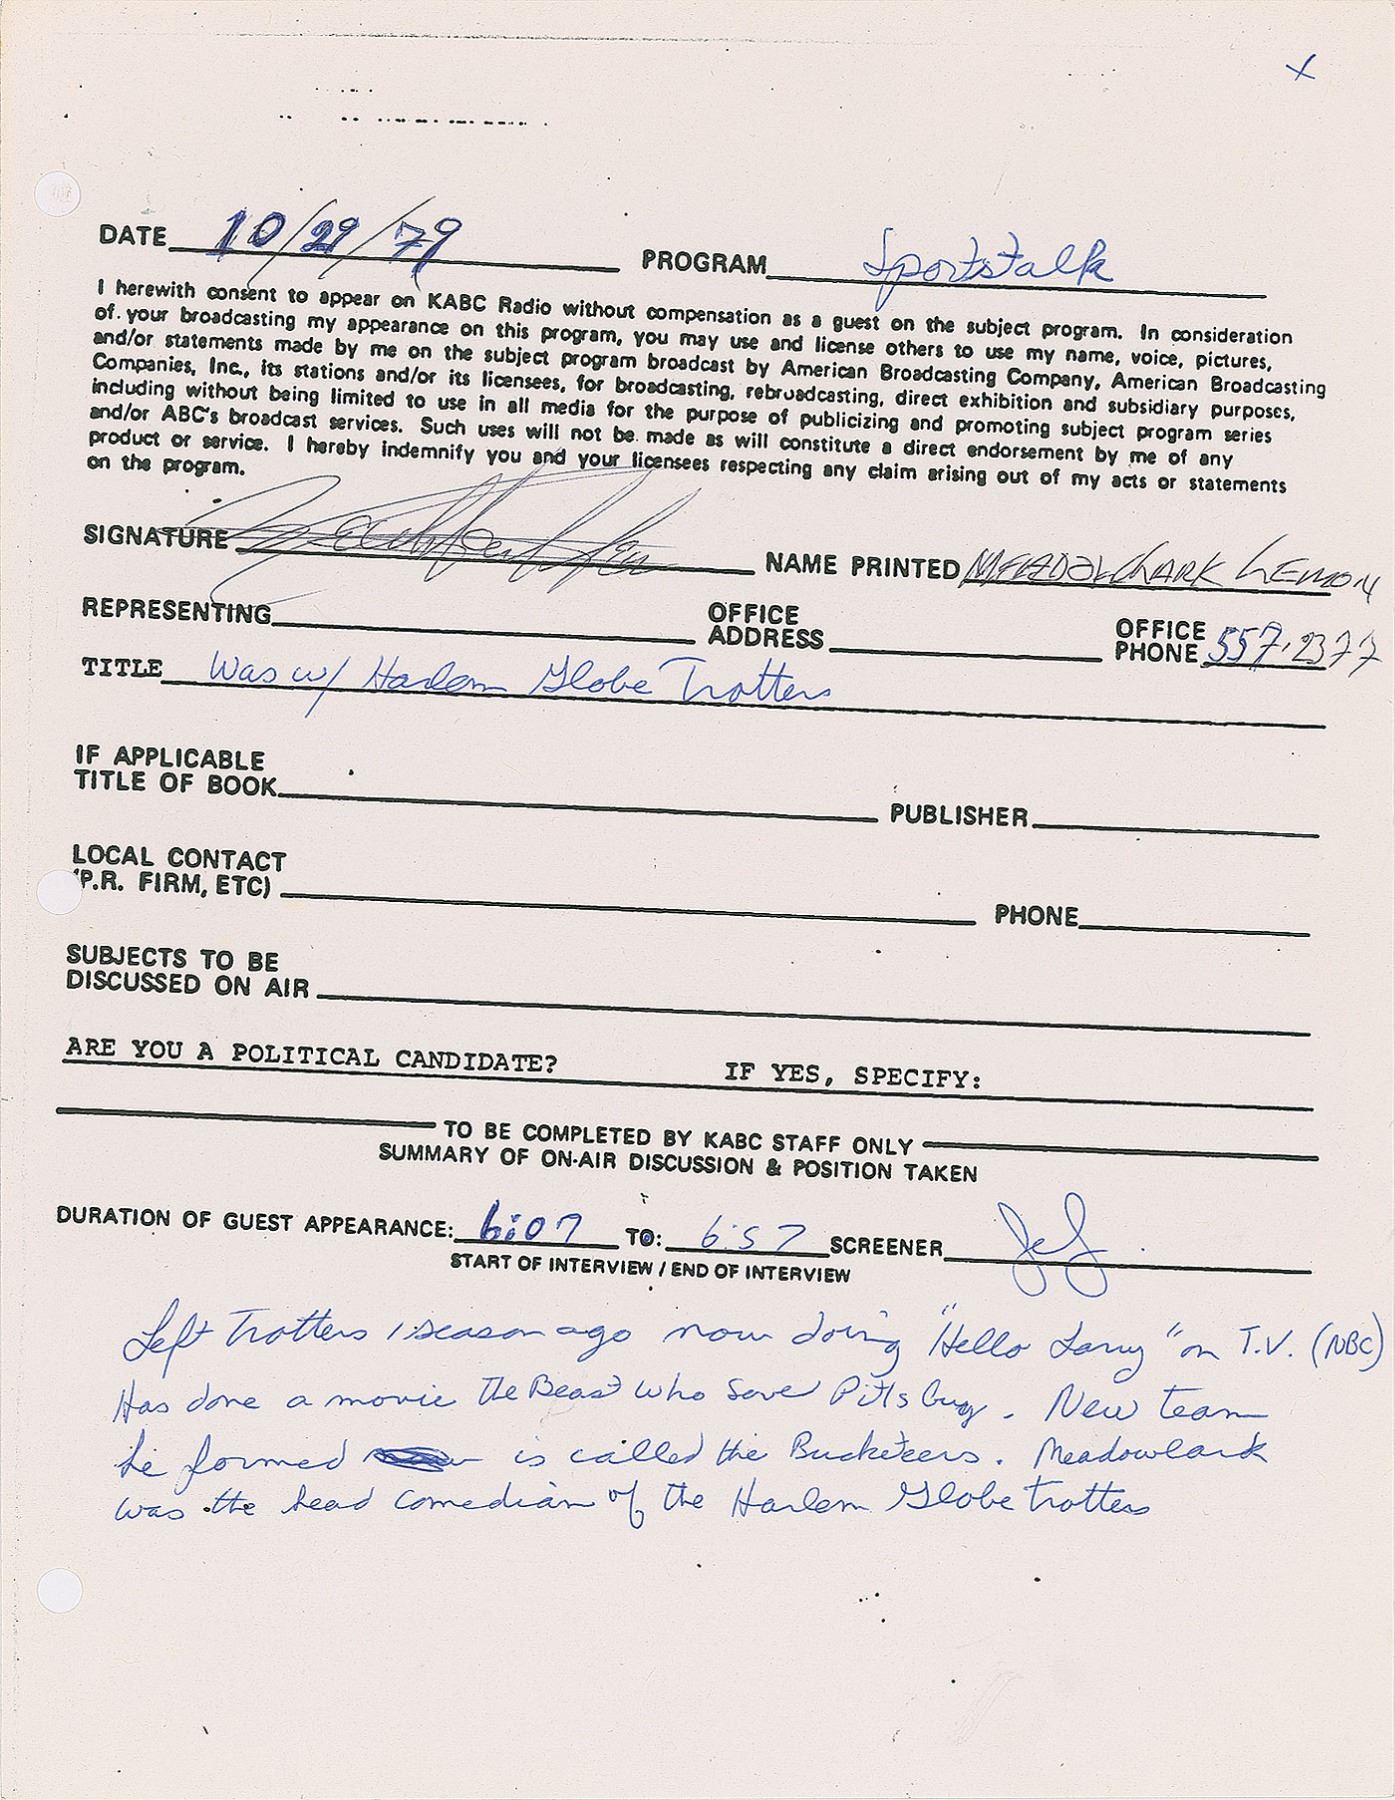 X
DATE 10/29/79 PROGRAM Sportstalk
I herewith consent to appear on KABC Radio without compensation as a guest on the subject program. In consideration
of your broadcasting my appearance on this program, you may use and license others to use my name, voice, pictures,
and/or statements made by me on the subject program broadcast by American Broadcasting Company, American Broadcasting
Companies, Inc., its stations and/or its licensees, for broadcasting, rebroadcasting, direct exhibition and subsidiary purposes,
including without being limited to use in all media for the purpose of publicizing and promoting subject program series
and/or ABC's broadcast services. Such uses will not be made as will constitute a direct endorsement by me of any
product or service. I hereby indemnify you and your licensees respecting any claim arising out of my acts or statements
on the program.
SIGNATURE NAME PRINTED MEADOWLARK LEMON
REPRESENTING OFFICE ADDRESS OFFICE PHONE 557-2377
TITLE Was w/ Harlem Globe Trotters
IF APPLICABLE
TITLE OF BOOK PUBLISHER
LOCAL CONTACT
(P.R. FIRM, ETC) PHONE
SUBJECTS TO BE
DISCUSSED ON AIR
ARE YOU A POLITICAL CANDIDATE? IF YES, SPECIFY:
TO BE COMPLETED BY KABC STAFF ONLY
SUMMARY OF ON-AIR DISCUSSION & POSITION TAKEN
DURATION OF GUEST APPEARANCE: 6:07 TO: 6:57 SCREENER
START OF INTERVIEW / END OF INTERVIEW
Left Trotters 1 season ago now doing "Hello Larry" on T.V. (NBC)
Has done a movie The Beast who Save Pittsburg. New team
he formed is called the Bucketeers. Meadowlark
was the head comedian of the Harlem Globe trotters